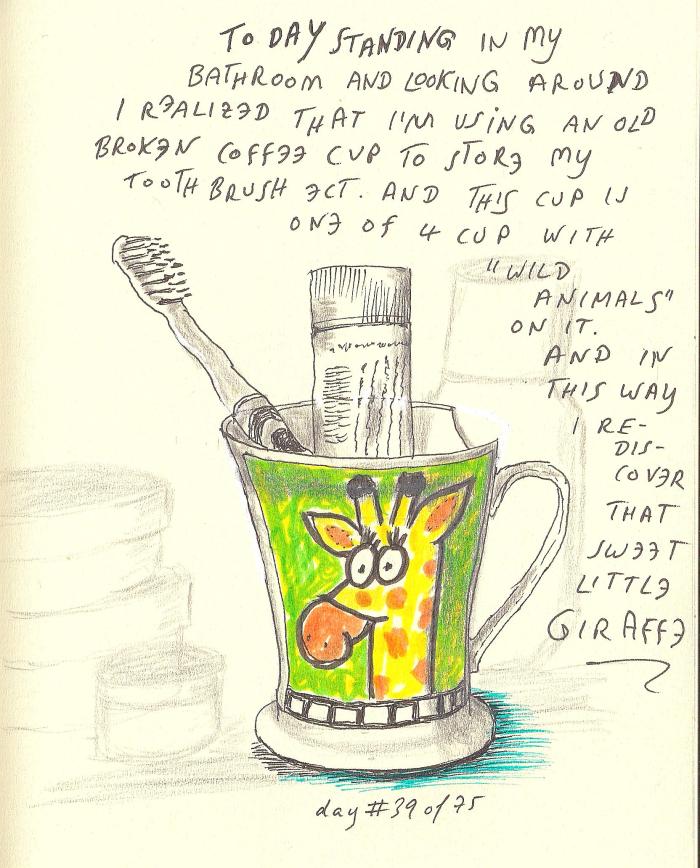 TODAY STANDING IN MY
BATHROOM AND LOOKING AROUND
I REALIZED THAT I'M USING AN OLD
BROKEN COFFEE CUP TO STORE MY
TOOTHBRUSH ECT. AND THIS CUP IS
ONE OF 4 CUP WITH
"WILD
ANIMALS"
ON IT.
AND IN
THIS WAY
I RE-
DIS-
COVER
THAT
SWEET
LITTLE
GIRAFFE
day #39 of 75